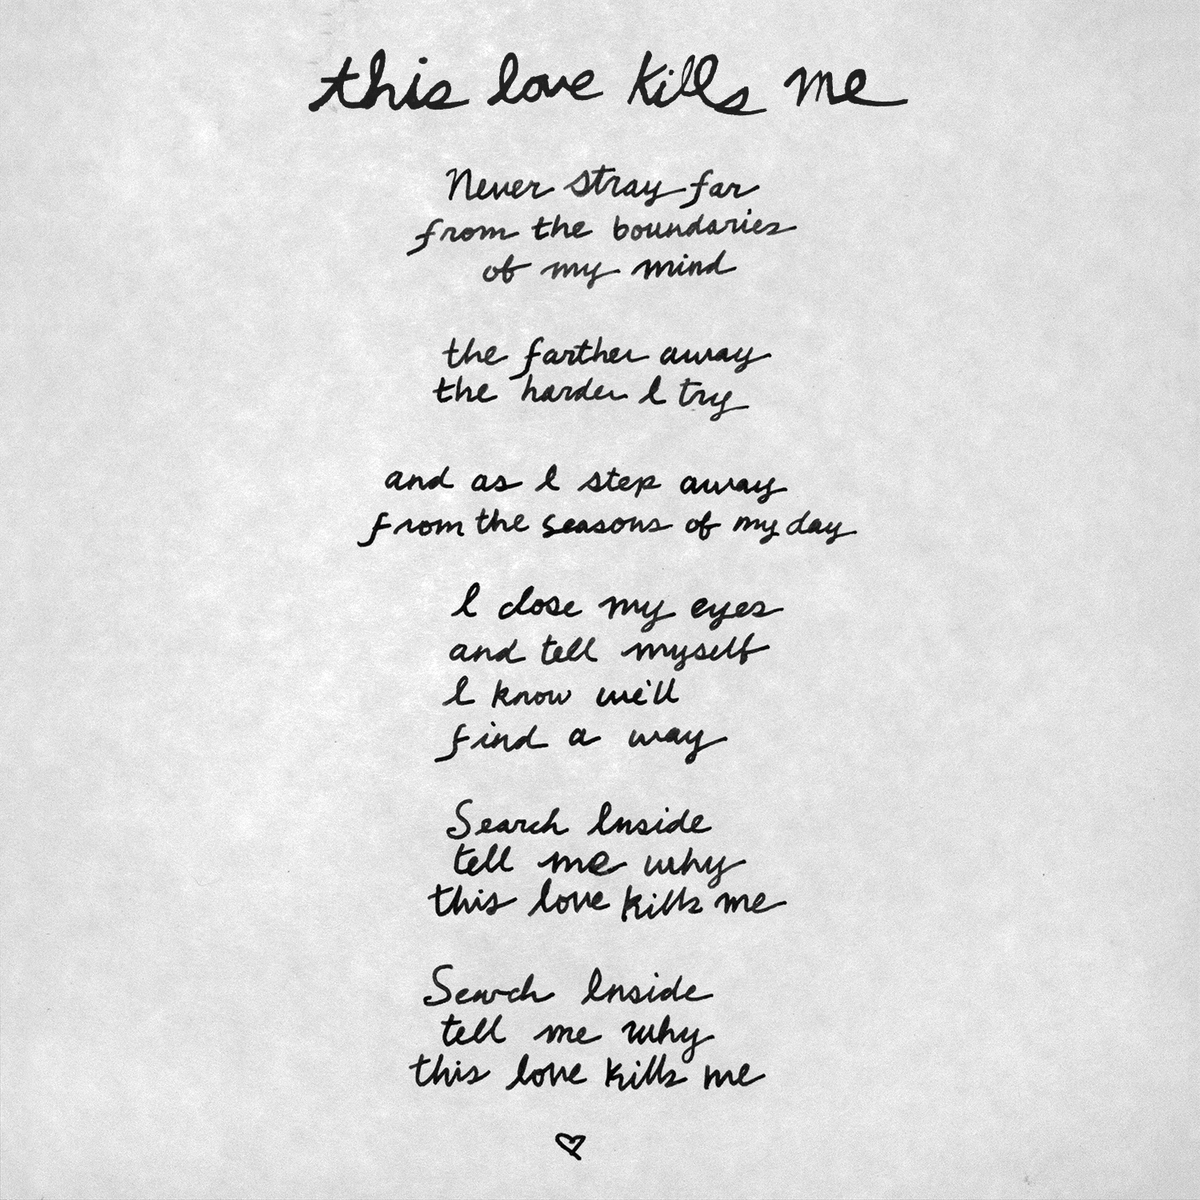 this love kills me
Never stray far
from the boundaries
of my mind
the farther away
the harder I try
and as I step away
from the seasons of my day
I close my eyes
and tell myself
I know we'll
find a way
Search Inside
tell me why
this love kills me
Search Inside
tell me why
this love kills me